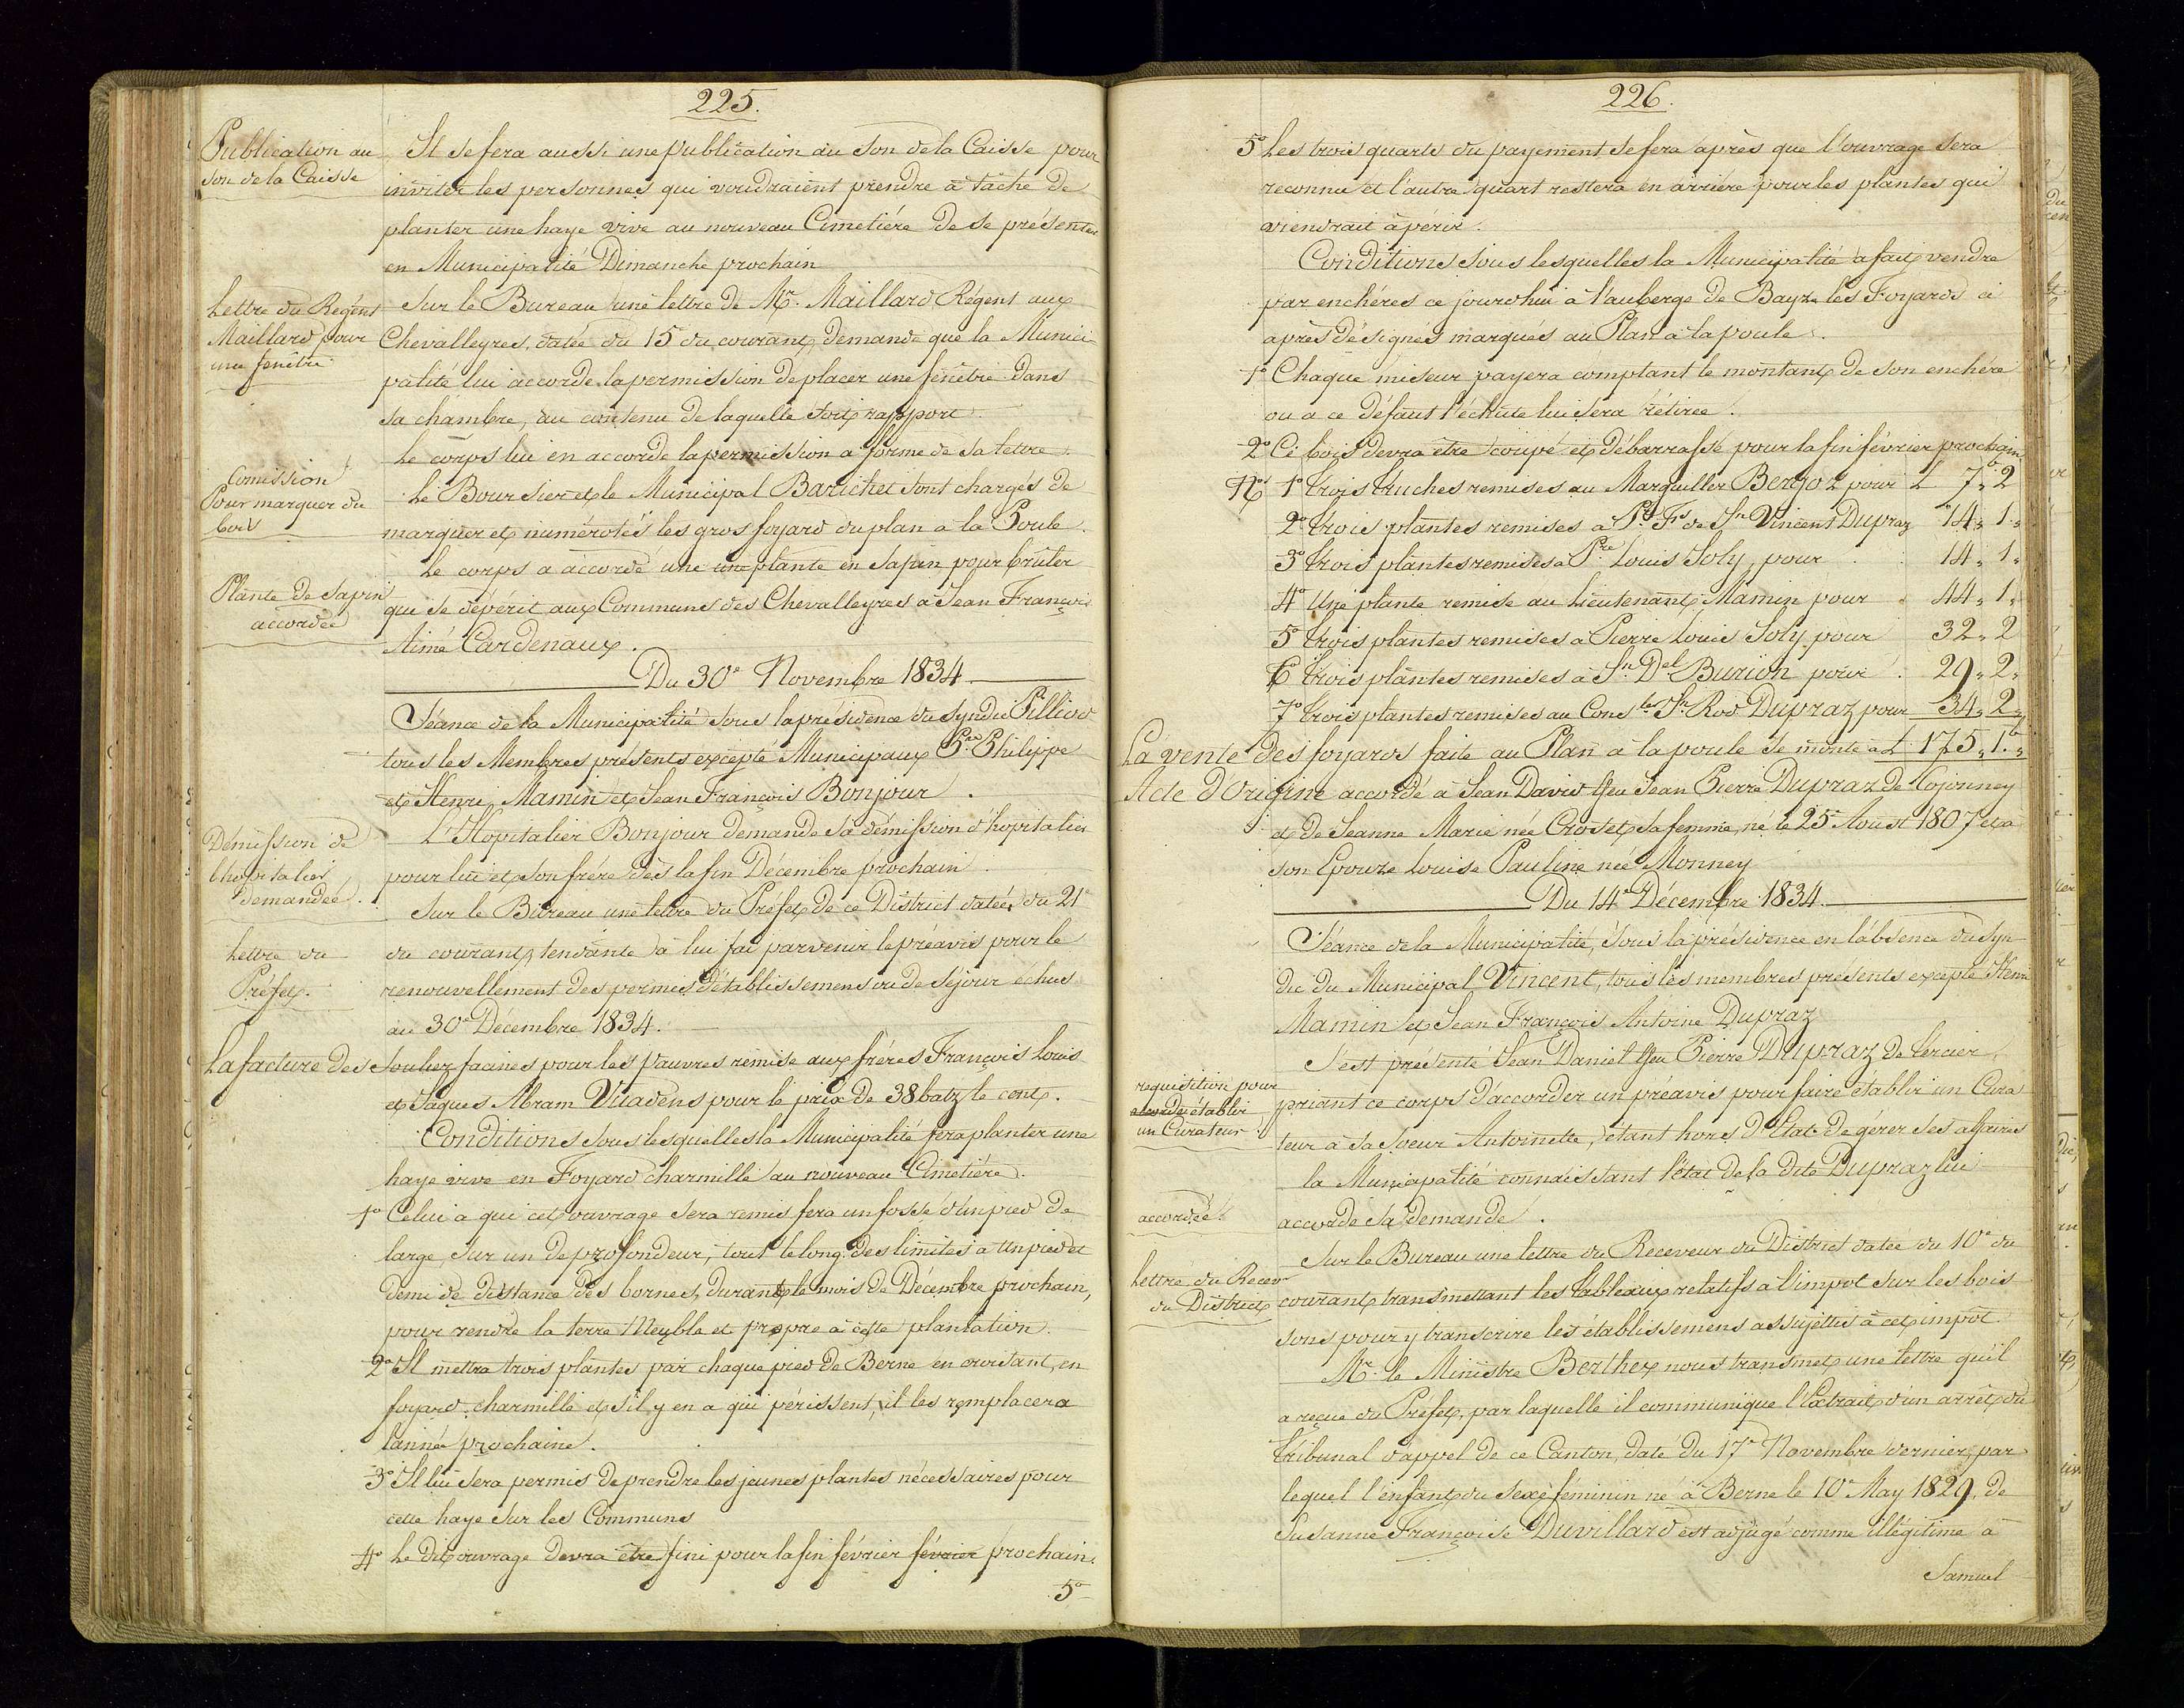 225.
Publication au
son de la Caisse
Il se fera aussi une publication au son de la Caisse pour
inviter les personnes qui voudraient prendre à tâche de
planter une haye vive au nouveau Cimetiére de se présenter
en Municipalité Dimanche prochain
Lettre du Régent
Maillard pour
une fenêtre
Sur le Bureau une lettre de Mr. Maillard Régent aux
Chevalleyres, datée du 15 du courant, demande que la Munici
palité lui accorde la permission de placer une fenêtre dans
sa chambre, au contenu de laquelle soit rapport.
Le corps lui en accorde la permission a forme de sa lettre.
Comission
Pour marquer du
bois
Le Boursier et le Municipal Barichet sont chargés de
marquer et numérotés les gros foyard du plan a la Poule.
Plante de Sapin
accordée
Le corps a accordé une une plante en sapin pour brûler
qui se dépérit aux Communs des Chevalleyres à Jean François
Aimé Cardenaux.
Du 30e Novembre 1834
Séance de la Municipalité sous la présidence du Syndic Pilliod
tous les Membres présents excepté Municipaux Pre Philippe
et Henri Mamin et Jean François Bonjour.
Démission de
l'hopitalier
demandée.
L'Hopitalier Bonjour demande sa démission d'hopitalier
pour lui et son frére dès la fin Décembre prochain.
Lettre du
Préfet.
Sur le Bureau une lettre du Préfet de ce District datée du 21
du courant, tendante à lui fai parvenir le préavis pour le
renouvellement des permis d'établissemens ou de séjour échus
au 30e Décembre 1834.
La facture des Soulier facines pour les pauvres remise aux fréres François Louis
et Jaques Abram Vuadens pour le prix de 38 batz le cent.
Conditions sous lesquelles la Municipalité fera planter une
haye vive en Foyard charmille au nouveau Cimetiére.
1o Celui a qui cet ouvrage sera remis fera un fossé d'un pied de
large, sur un de profondeur, tout le long des limites a un pied et
demi de distance des bornes, durant le mois de Décembre prochain,
pour rendre la terre Meuble et propre à cette plantation.
2o Il mettra trois plantes par chaque pied de Berne en croisant, en
foyard, charmille et s'il y en a qui périssent, il les remplacera
l'année prochaine.
3o Il lui sera permis de prendre les jeunes plantes nécessaires pour
cette haye sur les Communs
4o Le dit ouvrage devra être fini pour la fin février février prochain.
5o
226.
5o Les trois quarts du payement se fera après que l'ouvrage sera
reconnu et l'autre quart restera en arriére pour les plantes qui
viendrait à périr.
Conditions sous lesquelles la Municipalité a fait vendre
par enchéres ce jourdhui à l'auberge de Bayze les Foyards ci
après désignés marqués au Plan à la poule.
1o Chaque miseur payera comptant le montant de son enchére
ou a ce défaut l'échute lui sera rétirée.
2o Ce bois devra être coupé et débarrassé pour la fin février prochain
Nos 1o trois truches remises au Marguiller Bergoz pour L 7, 2
2o trois plantes remises a Pre Fs de Jn Vincent Dupraz 14, 1,
3o trois plantes remises a Pre Louis Joly, pour 14, 1,
4o Une plante remise au Lieutenant Mamin pour 44, 1,
5o trois plantes remises a Pierre Louis Joly pour 32, 2
6o trois plantes remises à Jn Del Burion pour 29, 2,
7o trois plantes remises au Consler Jn Rod Dupraz pour 34, 2,
La vente des foyards faite au Plan à la poule se monte a L 175, 1.
Acte d'Origine accordé à Jean David ffeu Jean Pierre Dupraz de Cojonney
et de Jeanne Marie née Croset, sa femme, né le 25e Aoust 1807 et a
son Epouze Louise Pauline née Monney
Du 14e Décembre 1834.
Séance de la Municipalité, sous la présidence en l'absence du Syn
dic du Municipal Vincent, tous les membres présents excepté Henri
Mamin et Jean François Antoine Dupraz
requisition pour
établir
un Curateur
S'est présenté Jean Daniel ffeu Pierre Dupraz de Lercier
priant ce corps d'accorder un préavis pour faire établir un Cura
teur à sa soeur Antoinette, étant hors d'Etat de gérer ses affaires
accordée.
la Municipalité connaissant l'état de la dite Dupraz lui
accorde sa demande.
Lettre du Recevr
du District
Sur le Bureau une lettre du Receveur du District datée du 10e du
courant transmettant les tableaux relatifs a l'impot sur les bois
sons pour y transcrire les établissemens assujettis à cet impot.
Mr. le Ministre Berthex nous transmet une lettre qu'il
a reçue du Préfet, par laquelle il communique l'Extrait d'un arrêt du
tribunal d'appel de ce Canton, daté du 17e Novembre dernier, par
lequel l'enfant du sexe féminin né à Berne le 10e May 1829, de
Susanne Françoise Duvillard est adjugé comme illégitime à
Samuel